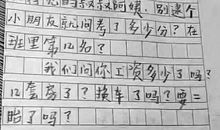 叔叔阿姨,别逮个
小朋友就问考了多少分?在
班里第几名?
我们问你工资多少了吗?
几套房了?换车了吗?要二
胎了吗?